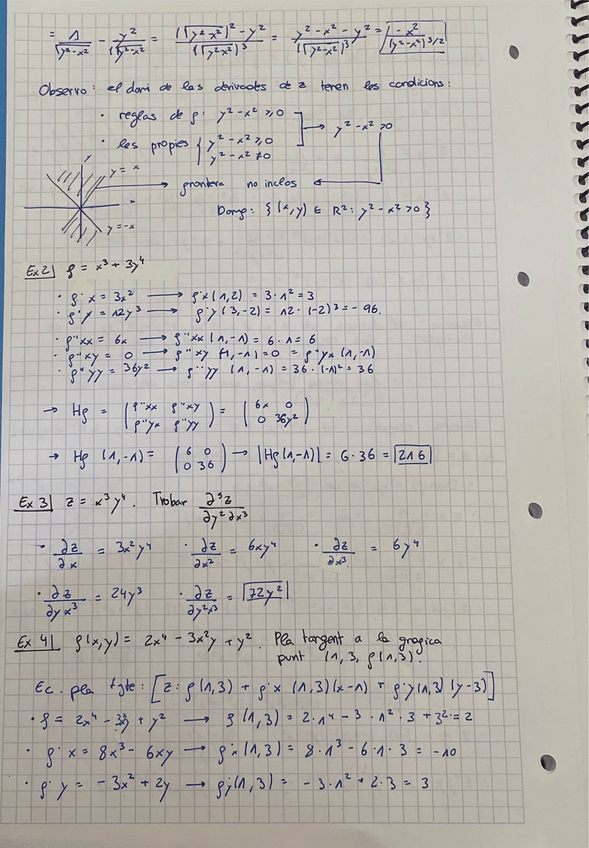 = 1/√(y²-x²) - y²/(√(y²-x²))³ = ((√(y²-x²))² - y²)/(√(y²-x²))³ = (y² - x² - y²)/(√(y²-x²))³ = -x²/(y²-x²)^(3/2)
Observo: el domi de las derivades de z tenen les condicions:
· reglas de f: y² - x² ≥ 0
· les propies { y² - x² ≥ 0 → y² - x² > 0
y² - x² ≠ 0
y
y = x
frontera no inclos
x
Domf: { (x,y) ∈ R²: y² - x² > 0 }
y = -x
Ex2| f = x³ + 3y⁴
· f'x = 3x² → f'x (1,2) = 3·1² = 3
· f'y = 12y³ → f'y (3,-2) = 12·(-2)³ = -96.
· f''xx = 6x → f''xx (1,-1) = 6·1 = 6
· f''xy = 0 → f''xy (1,-1) = 0 = f''yx (1,-1)
· f''yy = 36y² → f''yy (1,-1) = 36·(-1)² = 36
→ Hf = ( f''xx f''xy ) = ( 6x 0 )
( f''yx f''yy ) ( 0 36y² )
→ Hf (1,-1) = ( 6 0 ) → |Hf(1,-1)| = 6·36 = 216
( 0 36 )
Ex 3| z = x³y⁴. Trobar ∂⁵z/∂y²∂x³
· ∂z/∂x = 3x²y⁴ · ∂z/∂x² = 6xy⁴ · ∂z/∂x³ = 6y⁴
· ∂z/∂yx³ = 24y³ · ∂z/∂y²x³ = 72y²
Ex 4| f(x,y) = 2x⁴ - 3x²y + y². Pla tangent a la grafica
punt (1, 3, f(1,3).
Ec. pla tgte: [z: f(1,3) + f'x (1,3)(x-1) + f'y(1,3)(y-3)]
· f = 2x⁴ - 3x²y + y² → f(1,3) = 2·1⁴ - 3·1²·3 + 3² = 2
· f'x = 8x³ - 6xy → f'x(1,3) = 8·1³ - 6·1·3 = -10
· f'y = -3x² + 2y → f'y(1,3) = -3·1² + 2·3 = 3